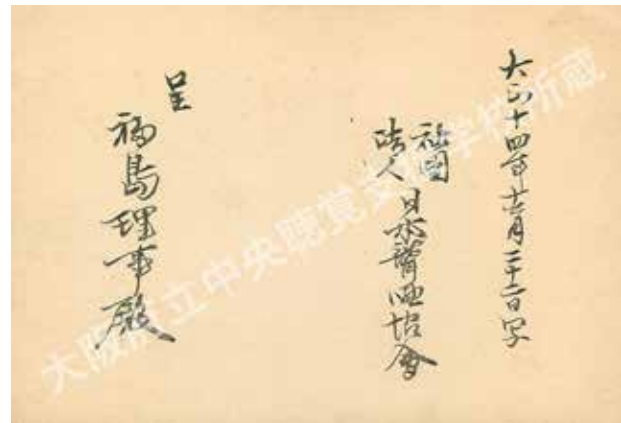 大正十四年十一月二十二日写
社団
法人 日本聾唖協會
呈
福島理事殿
大阪府立中央聴覚支援学校所蔵